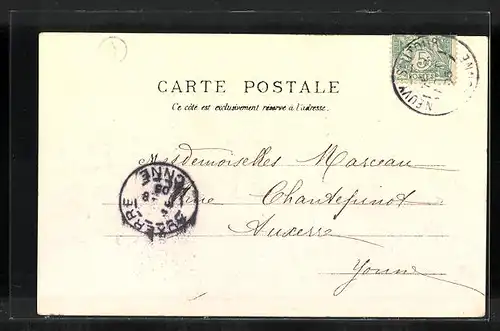 5
POSTES
CARTE POSTALE
Ce côté est exclusivement réservé à l'adresse.
Mesdemoiselles Marceau
Chantepinot
Auxerre
Yonne
AUXERRE
YONNE
03